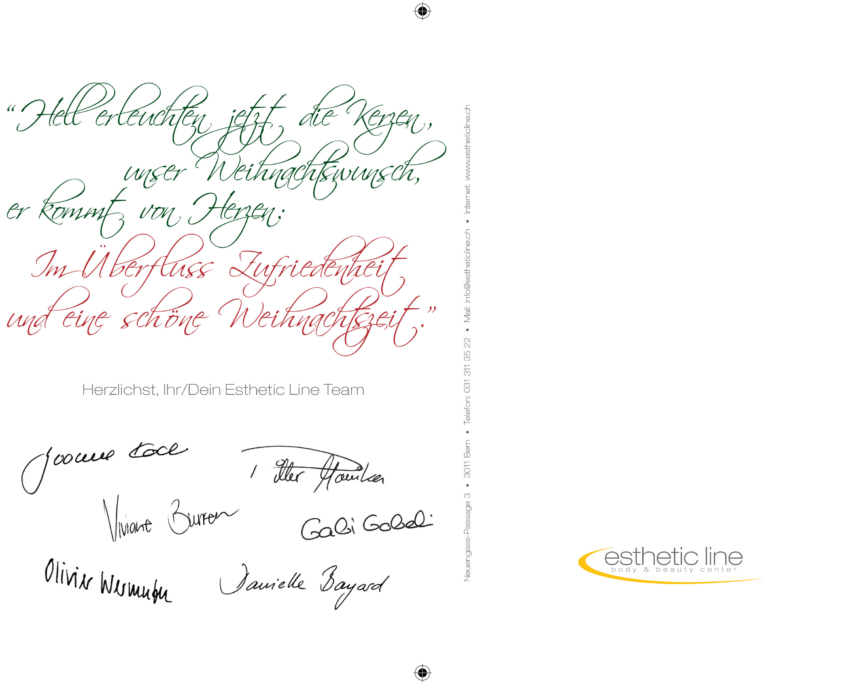 “Hell erleuchten jetzt die Kerzen,
unser Weihnachtswunsch,
er kommt von Herzen:
Im Überfluss Zufriedenheit
und eine schöne Weihnachtszeit.”
Herzlichst, Ihr/Dein Esthetic Line Team
Viviane Burren
Gabi Gobeli
Olivier
Danielle Bayard
Neuengass-Passage 3 • 3011 Bern • Telefon: 031 311 35 22 • Mail: info@estheticline.ch • Internet: www.estheticline.ch
esthetic line
body & beauty center